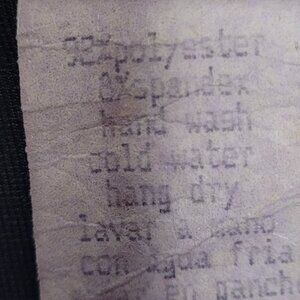 92%polyester
8%spandex
hand wash
cold water
hang dry
lavar a mano
con agua fria
en ganch